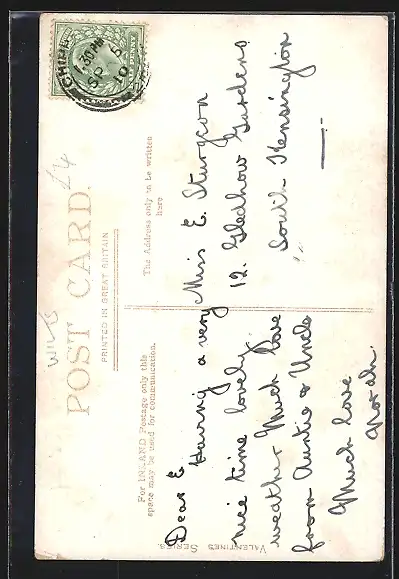 WILTS
£4
POST CARD.
PRINTED IN GREAT BRITAIN
For INLAND Postage only this
space may be used for communication.
The Address only to be written
here
Dear E
Having a very
nice time lovely
weather Much love
from Auntie & Uncle
Much love
Norah.
Miss E. Sturgeon
12. Gledhow Gardens
South Kensington
VALENTINES SERIES.
1.30 PM
SP 5
10